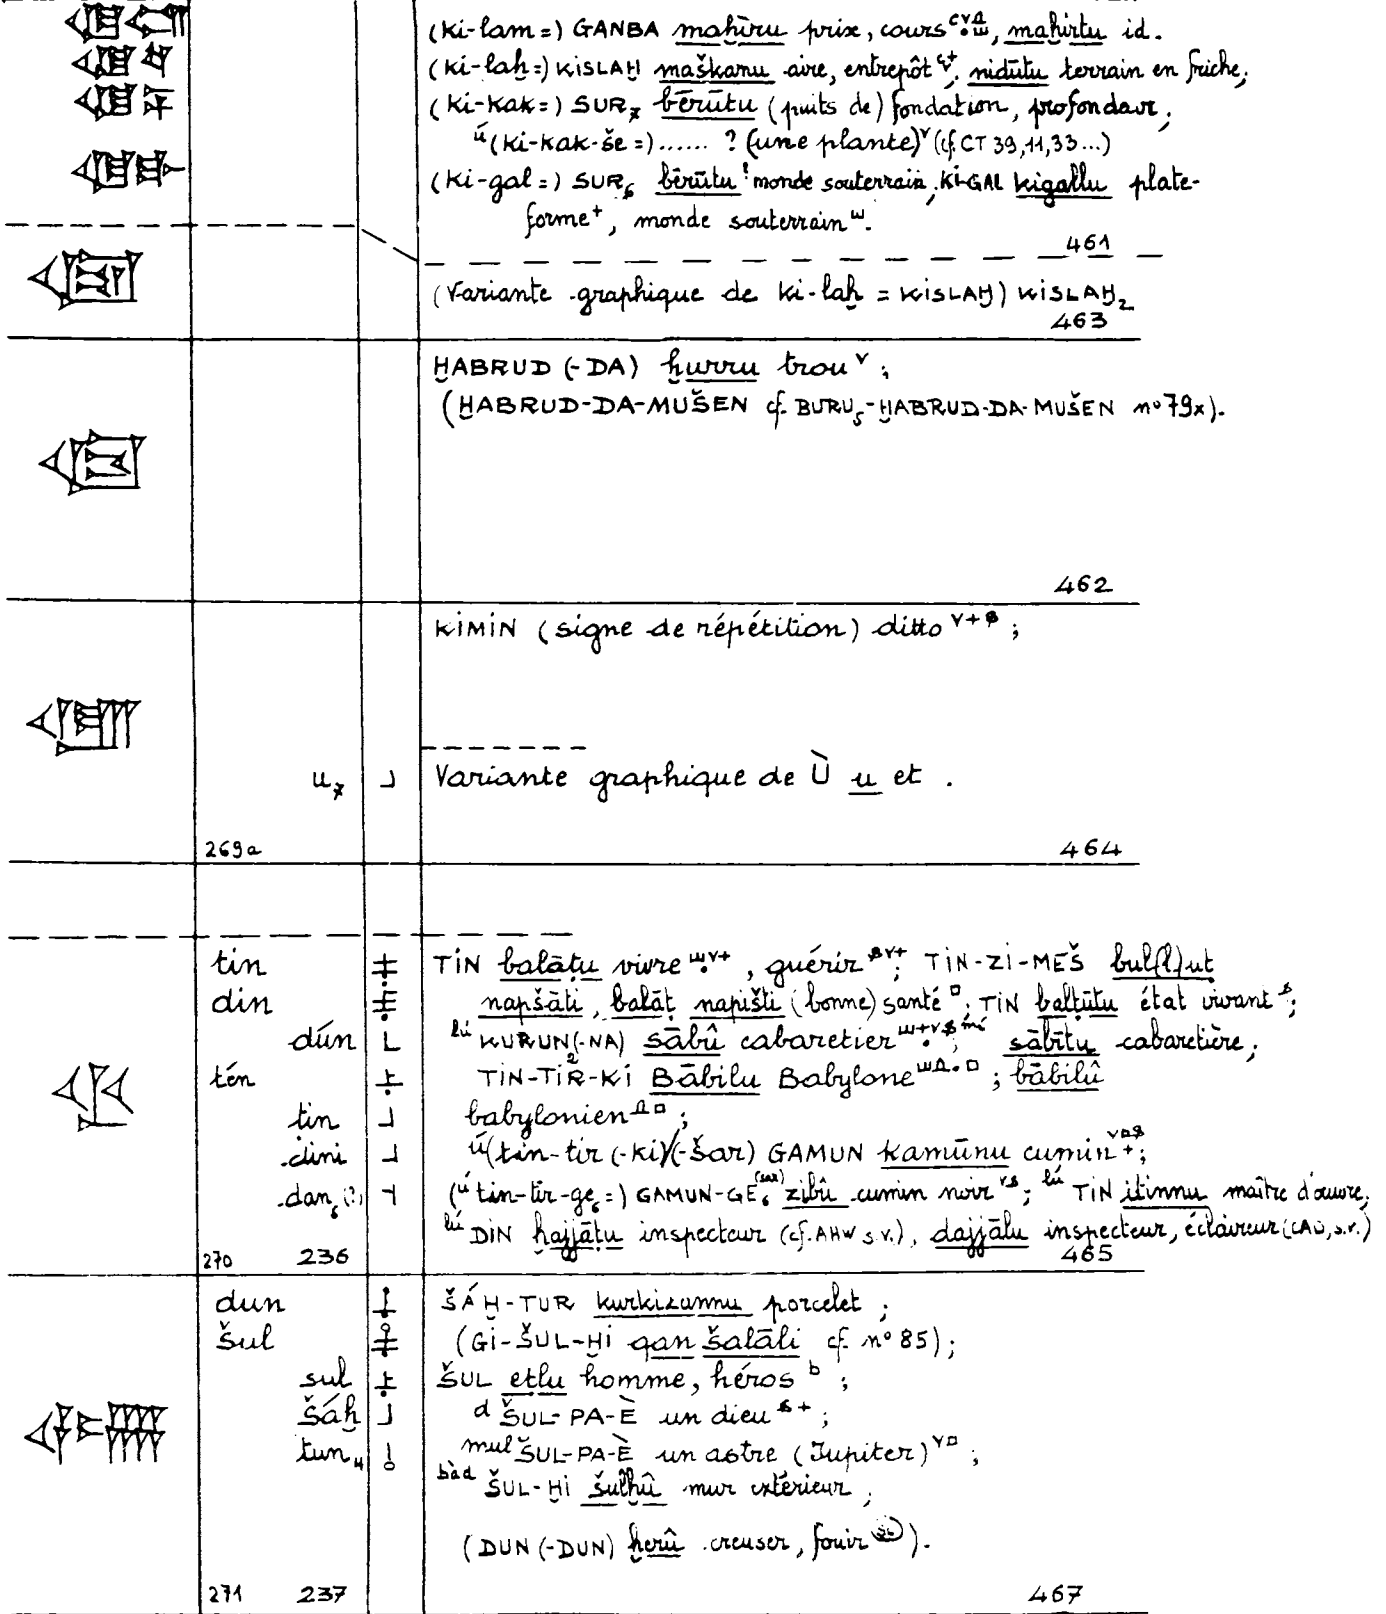 (Ki-lam=) GANBA maḫīru prix, cours, maḫirtu id.
(Ki-laḫ=) KISLAḪ maškanu aire, entrepôt, nidûtu terrain en friche;
(Ki-KaK=) SUR₇ bērūtu (puits de) fondation, profondeur;
ú(Ki-KaK-še=)...... ? (une plante)ᵛ (cf. CT 39,11,33...)
(Ki-gal=) SUR₆ bērūtu! monde souterrain, KI-GAL kigallu plate-
forme⁺, monde souterrain.
461
(Variante graphique de Ki-laḫ = KISLAḪ) KISLAḪ₂
463
ḪABRUD (-DA) ḫurru trouᵛ;
(ḪABRUD-DA-MUŠEN cf. BURU₅-ḪABRUD-DA-MUŠEN nº 79x).
462
KIMIN (signe de répétition) ditto;
u₇ ┘ Variante graphique de Ù u et .
269a 464
tin TIN balāṭu vivre, guérir; TIN-ZI-MEŠ bul(l)uṭ
din napšāti, balāṭ napišti (bonne) santé, TIN balṭūtu état vivant;
dún lú KURUN(-NA) sābû cabaretier, mí sābītu cabaretière;
tén TIN-TIR-KI Bābilu Babylone; bābilû
ṭin ┘ babylonien;
dini ┘ ú(tin-tir(-Ki)/(-šar) GAMUN kamūnu cumin;
dan₆(?) (ú tin-tir-ge₆=) GAMUN-GE₆ (sar) zibû cumin noir; lú TIN itinnu maître d'œuvre,
lú DIN ḫajjāṭu inspecteur (cf. AHW s.v.), dajjālu inspecteur, éclaireur (CAD, s.v.)
270 236 465
dun ŠÁḪ-TUR kurkizannu porcelet;
šul (GI-ŠUL-ḪI qan šalāli cf. nº 85);
sul ŠUL eṭlu homme, héros ᵇ;
šáḫ ┘ d ŠUL-PA-È un dieu;
tun₄ mul ŠUL-PA-È un astre (Jupiter);
bàd ŠUL-ḪI šulḫû mur extérieur;
(DUN (-DUN) ḫerû creuser, fouir).
271 237 467